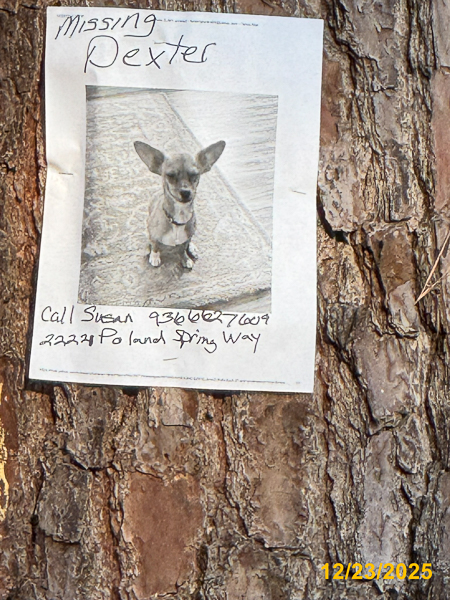 Missing
Dexter
Call Susan 9366627609
22221 Poland Spring Way
12/23/2025